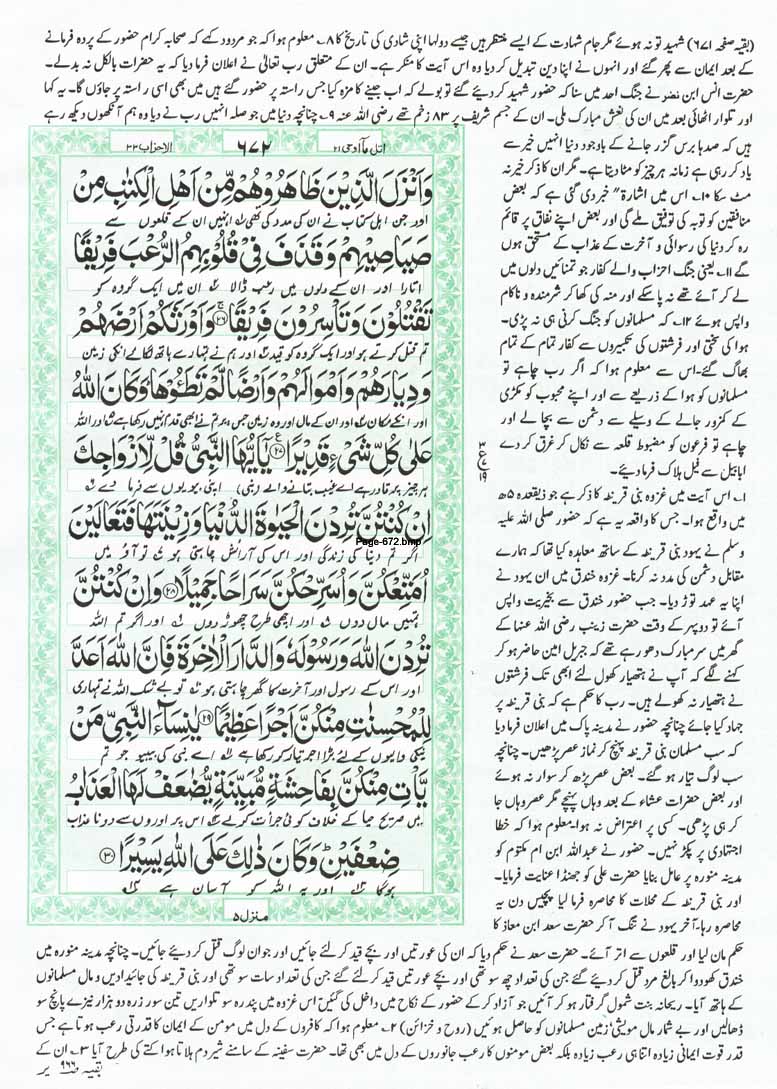 (بقیہ صفحہ ۶۷۱) شہید تو نہ ہوئے مگر جام شہادت کے ایسے منتظر ہیں جیسے دولہا اپنی شادی کی تاریخ کا ۸۔ معلوم ہوا کہ جو مردود کہے کہ صحابہ کرام حضور کے پردہ فرمانے
کے بعد ایمان سے پھر گئے اور انہوں نے اپنا دین تبدیل کر دیا وہ اس آیت کا منکر ہے۔ ان کے متعلق رب تعالیٰ نے اعلان فرما دیا کہ یہ حضرات بالکل نہ بدلے۔
حضرت انس ابن نضر نے جنگ احد میں سنا کہ حضور شہید کر دیئے گئے تو بولے کہ اب جینے کا مزہ کیا جس راستہ پر حضور گئے ہیں میں بھی اسی راستہ پر جاؤں گا۔ یہ کہا
اور تلوار اٹھائی بعد میں ان کی نعش مبارک ملی۔ ان کے جسم شریف پر ۸۳ زخم تھے رضی اللہ عنہ ۹۔ چنانچہ دنیا میں جو صلہ انہیں رب نے دیا وہ ہم آنکھوں دیکھ رہے
ہیں کہ صدہا برس گزر جانے کے باوجود دنیا انہیں خیر سے
یاد کر رہی ہے زمانہ ہر چیز کو مٹا دیتا ہے۔ مگر ان کا ذکر خیر نہ
مٹ سکا ۱۰۔ اس میں اشارۃ" خبر دی گئی ہے کہ بعض
منافقین کو توبہ کی توفیق ملے گی اور بعض اپنے نفاق پر قائم
رہ کر دنیا کی رسوائی و آخرت کے عذاب کے مستحق ہوں
گے ۱۱۔ یعنی جنگ احزاب والے کفار جو تمنائیں دلوں میں
لے کر آئے تھے نہ پا سکے اور منہ کی کھا کر شرمندہ و ناکام
واپس ہوئے ۱۲۔ کہ مسلمانوں کو جنگ کرنی ہی نہ پڑی۔
ہوا کی سختی اور فرشتوں کی تکبیروں سے کفار تمام کے تمام
بھاگ گئے۔ اس سے معلوم ہوا کہ اگر رب چاہے تو
مسلمانوں کو ہوا کے ذریعے سے اور اپنے محبوب کو مکڑی
کے کمزور جالے کے وسیلے سے دشمن سے بچا لے اور
چاہے تو فرعون کو مضبوط قلعہ سے نکال کر غرق کر دے
ابابیل سے فیل ہلاک فرما دیئے۔
۱۔ اس آیت میں غزوہ بنی قریظہ کا ذکر ہے جو ذیقعدہ ۵ھ
میں واقع ہوا۔ جس کا واقعہ یہ ہے کہ حضور صلی اللہ علیہ
وسلم نے یہود بنی قریظہ کے ساتھ معاہدہ کیا تھا کہ ہمارے
مقابل دشمن کی مدد نہ کرنا۔ غزوہ خندق میں ان یہود نے
اپنا یہ عہد توڑ دیا۔ جب حضور خندق سے بخیریت واپس
آئے تو دوپہر کے وقت حضرت زینب رضی اللہ عنہا کے
گھر میں سر مبارک دھو رہے تھے کہ جبریل امین حاضر ہو کر
کہنے لگے کہ آپ نے ہتھیار کھول لئے ابھی تک فرشتوں
نے ہتھیار نہ کھولے ہیں۔ رب کا حکم ہے کہ بنی قریظہ پر
جہاد کیا جائے چنانچہ حضور نے مدینہ پاک میں اعلان فرما دیا
کہ سب مسلمان بنی قریظہ پہنچ کر نماز عصر پڑھیں۔ چنانچہ
سب لوگ تیار ہو گئے۔ بعض عصر پڑھ کر سوار نہ ہوئے
اور بعض حضرات عشاء کے بعد وہاں پہنچے مگر عصر وہاں جا
کر ہی پڑھی۔ کسی پر اعتراض نہ ہوا۔ معلوم ہوا کہ خطا
اجتہادی پر پکڑ نہیں۔ حضور نے عبداللہ ابن ام مکتوم کو
مدینہ منورہ پر عامل بنایا حضرت علی کو جھنڈا عنایت فرمایا۔
اور بنی قریظہ کے محلات کا محاصرہ فرما لیا پچیس دن یہ
محاصرہ رہا۔ آخر یہود نے تنگ آ کر حضرت سعد ابن معاذ کا
اتل ما اوحی ۲۱
۶۷۲
الاحزاب ۳۳
وَاَنْزَلَ الَّذِیْنَ ظَاهَرُوْهُمْ مِّنْ اَهْلِ الْكِتٰبِ مِنْ
اور جن اہل کتاب نے ان کی مدد کی تھی انہیں ان کے قلعوں سے
صَیَاصِیْهِمْ وَقَذَفَ فِیْ قُلُوْبِهِمُ الرُّعْبَ فَرِیْقًا
اتارا اور ان کے دلوں میں رعب ڈالا ان میں ایک گروہ کو
تَقْتُلُوْنَ وَتَاْسِرُوْنَ فَرِیْقًا ۲۶ وَاَوْرَثَكُمْ اَرْضَهُمْ
تم قتل کرتے ہو اور ایک گروہ کو قید اور ہم نے تمہارے ہاتھ لگائے انکی زمین
وَدِیَارَهُمْ وَاَمْوَالَهُمْ وَاَرْضًا لَّمْ تَطَئُوْهَا وَكَانَ اللّٰهُ
اور انکے مکان اور ان کے مال اور وہ زمین جس پر تم نے ابھی قدم نہیں رکھا ہے اور اللہ
عَلٰی كُلِّ شَیْءٍ قَدِیْرًا ۲۷ یٰۤاَیُّهَا النَّبِیُّ قُلْ لِّاَزْوَاجِكَ
ہر چیز پر قادر ہے اے غیب بتانے والے (نبی) اپنی بیویوں سے فرما دے
اِنْ كُنْتُنَّ تُرِدْنَ الْحَیٰوةَ الدُّنْیَا وَزِیْنَتَهَا فَتَعَالَیْنَ
Page-672.bmp
اگر تم دنیا کی زندگی اور اس کی آرائش چاہتی ہو تو آؤ میں
اُمَتِّعْكُنَّ وَاُسَرِّحْكُنَّ سَرَاحًا جَمِیْلًا ۲۸ وَاِنْ كُنْتُنَّ
تمہیں مال دوں اور اچھی طرح چھوڑ دوں اور اگر تم اللہ
تُرِدْنَ اللّٰهَ وَرَسُوْلَهٗ وَالدَّارَ الْاٰخِرَةَ فَاِنَّ اللّٰهَ اَعَدَّ
اور اس کے رسول اور آخرت کا گھر چاہتی ہو تو بے شک اللہ نے تمہاری
لِلْمُحْسِنٰتِ مِنْكُنَّ اَجْرًا عَظِیْمًا ۲۹ یٰنِسَآءَ النَّبِیِّ مَنْ
نیکی والیوں کے لئے بڑا اجر تیار کر رکھا ہے اے نبی کی بیبیو جو تم
یَّاْتِ مِنْكُنَّ بِفَاحِشَةٍ مُّبَیِّنَةٍ یُّضٰعَفْ لَهَا الْعَذَابُ
میں صریح حیا کے خلاف کوئی جرات کرے اس پر اوروں سے دونا عذاب
ضِعْفَیْنِ وَكَانَ ذٰلِكَ عَلَی اللّٰهِ یَسِیْرًا ۳۰
ہوگا اور یہ اللہ کو آسان ہے
منزل ۵
حکم مان لیا اور قلعوں سے اتر آئے۔ حضرت سعد نے حکم دیا کہ ان کی عورتیں اور بچے قید کر لئے جائیں اور جوان لوگ قتل کر دیئے جائیں۔ چنانچہ مدینہ منورہ میں
خندق کھودوا کر بالغ مرد قتل کر دیئے گئے جن کی تعداد چھ سو تھی اور بچے عورتیں قید کر لئے گئے جن کی تعداد سات سو تھی اور بنی قریظہ کی جائیدادیں و مال مسلمانوں
کے ہاتھ آیا۔ ریحانہ بنت شمول گرفتار ہو کر آئیں جو آزاد کر کے حضور کے نکاح میں داخل کی گئیں اس غزوہ میں پندرہ سو تلواریں تین سو زرہ دو ہزار نیزے پانچ سو
ڈھالیں اور بے شمار مال مویشی زمین مسلمانوں کو حاصل ہوئیں (روح و خزائن) ۲۔ معلوم ہوا کہ کافروں کے دل میں مومن کے ایمان کا قدرتی رعب ہوتا ہے جس
قدر قوت ایمانی زیادہ اتنا ہی رعب زیادہ بلکہ بعض مومنوں کا رعب جانوروں کے دل میں بھی تھا۔ حضرت سفینہ کے سامنے شیر دم ہلاتا ہوا کتے کی طرح آیا ۳۔ ان کے
بقیہ ۹۶۶ پر